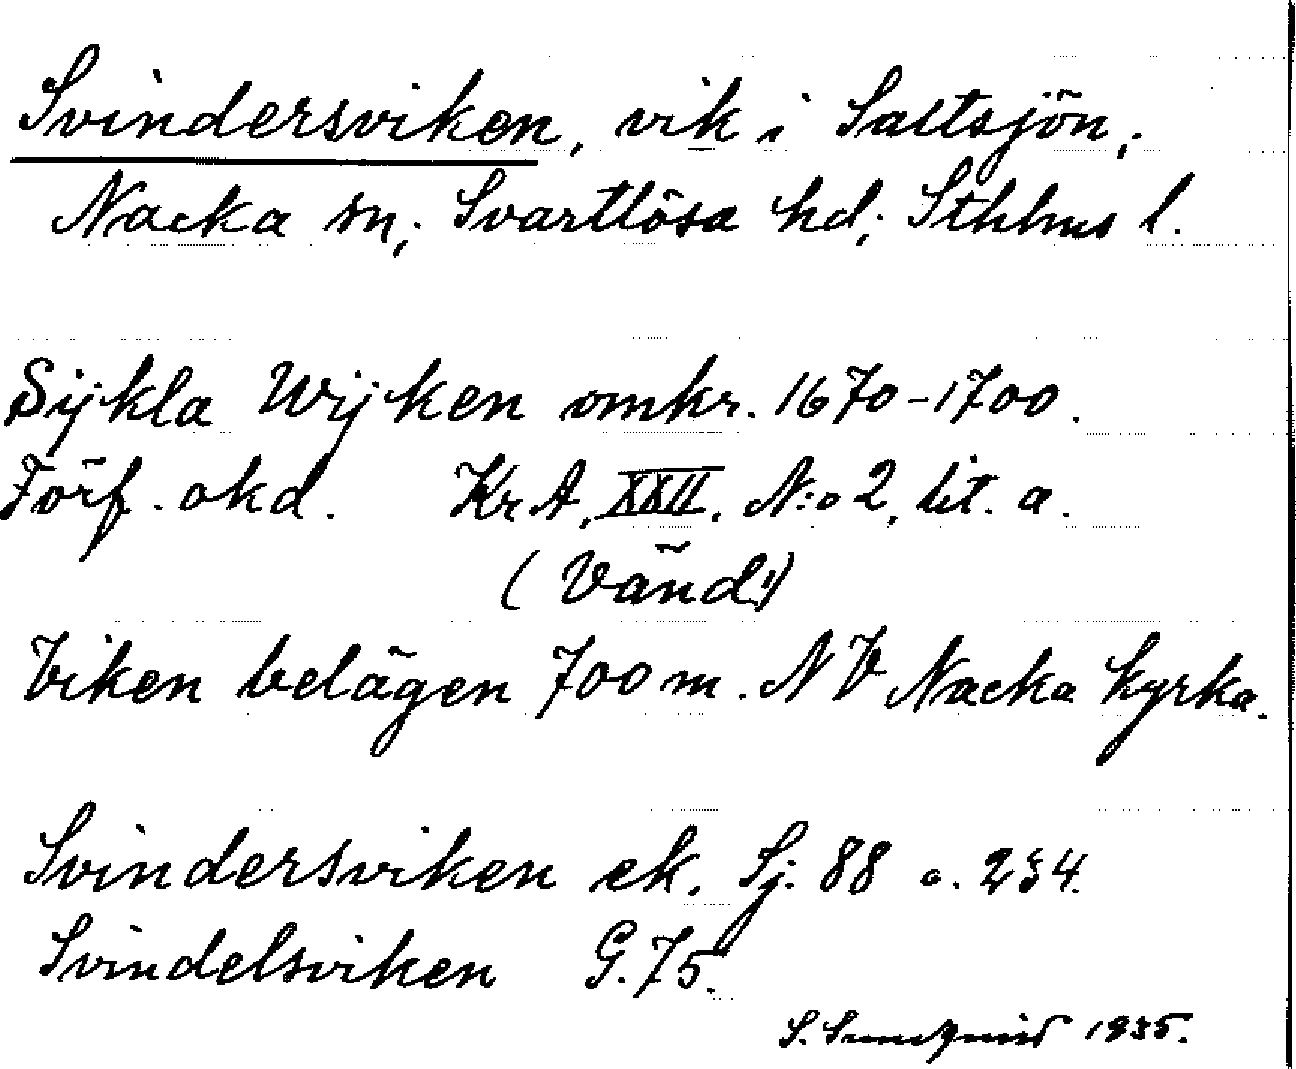 Svindersviken, vik i Saltsjön,
Nacka sn, Svartlösa hd, Sthlms l.
Sijkla Wijken omkr. 1670-1700.
Förf. okd. KrA, XXII. N:o 2, lit. a.
(Vänd!)
Viken belägen 700 m. NV Nacka kyrka.
Svindersviken ek. Sj. 88 o. 234.
Svindelsviken G. 75.
S. Sundquist 1935.